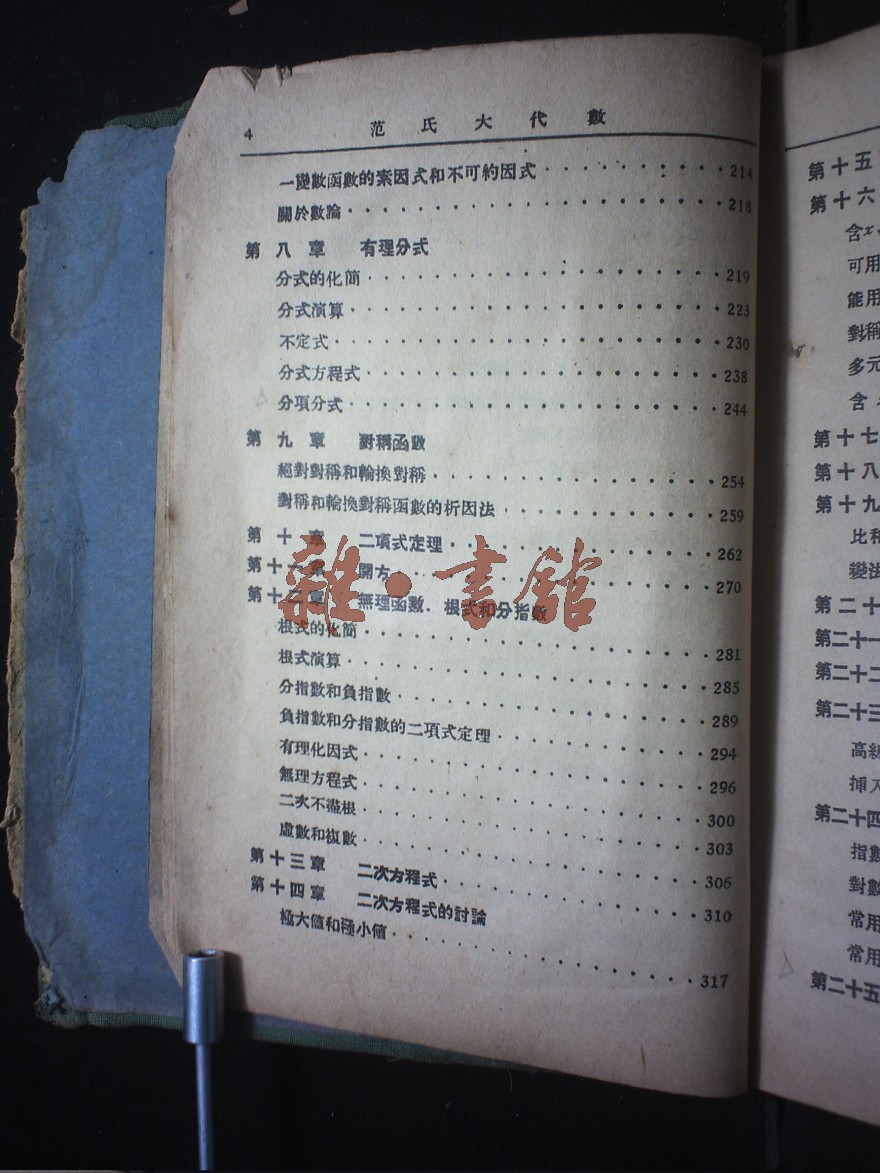 4 范氏大代數
一變數函數的素因式和不可約因式 · · · · · · · · · · 214
關於數論 · · · · · · · · · · · · · · · · · · · 218
第八章 有理分式
分式的化簡 · · · · · · · · · · · · · · · · · · 219
分式演算 · · · · · · · · · · · · · · · · · · · 223
不定式 · · · · · · · · · · · · · · · · · · · · 230
分式方程式 · · · · · · · · · · · · · · · · · · 238
分項分式 · · · · · · · · · · · · · · · · · · · 244
第九章 對稱函數
絕對對稱和輪換對稱 · · · · · · · · · · · · · · 254
對稱和輪換對稱函數的析因法 · · · · · · · · · · · 259
第十章 二項式定理 · · · · · · · · · · · · · · 262
第十一章 開方 · · · · · · · · · · · · · · · · 270
第十二章 無理函數.根式和分指數
根式的化簡 · · · · · · · · · · · · · · · · · · 281
根式演算 · · · · · · · · · · · · · · · · · · · 285
分指數和負指數 · · · · · · · · · · · · · · · · 289
負指數和分指數的二項式定理 · · · · · · · · · · · 294
有理化因式 · · · · · · · · · · · · · · · · · · 296
無理方程式 · · · · · · · · · · · · · · · · · · 300
二次不盡根 · · · · · · · · · · · · · · · · · · 303
虛數和複數 · · · · · · · · · · · · · · · · · · 306
第十三章 二次方程式 · · · · · · · · · · · · · 310
第十四章 二次方程式的討論
極大值和極小值 · · · · · · · · · · · · · · · · 317
雜·書館
第十五
第十六
含x
可用
能用
對稱
多元
含
第十七
第十八
第十九
比和
變法
第二十
第二十一
第二十二
第二十三
高級
插入
第二十四
指數
對數
常用
常用
第二十五